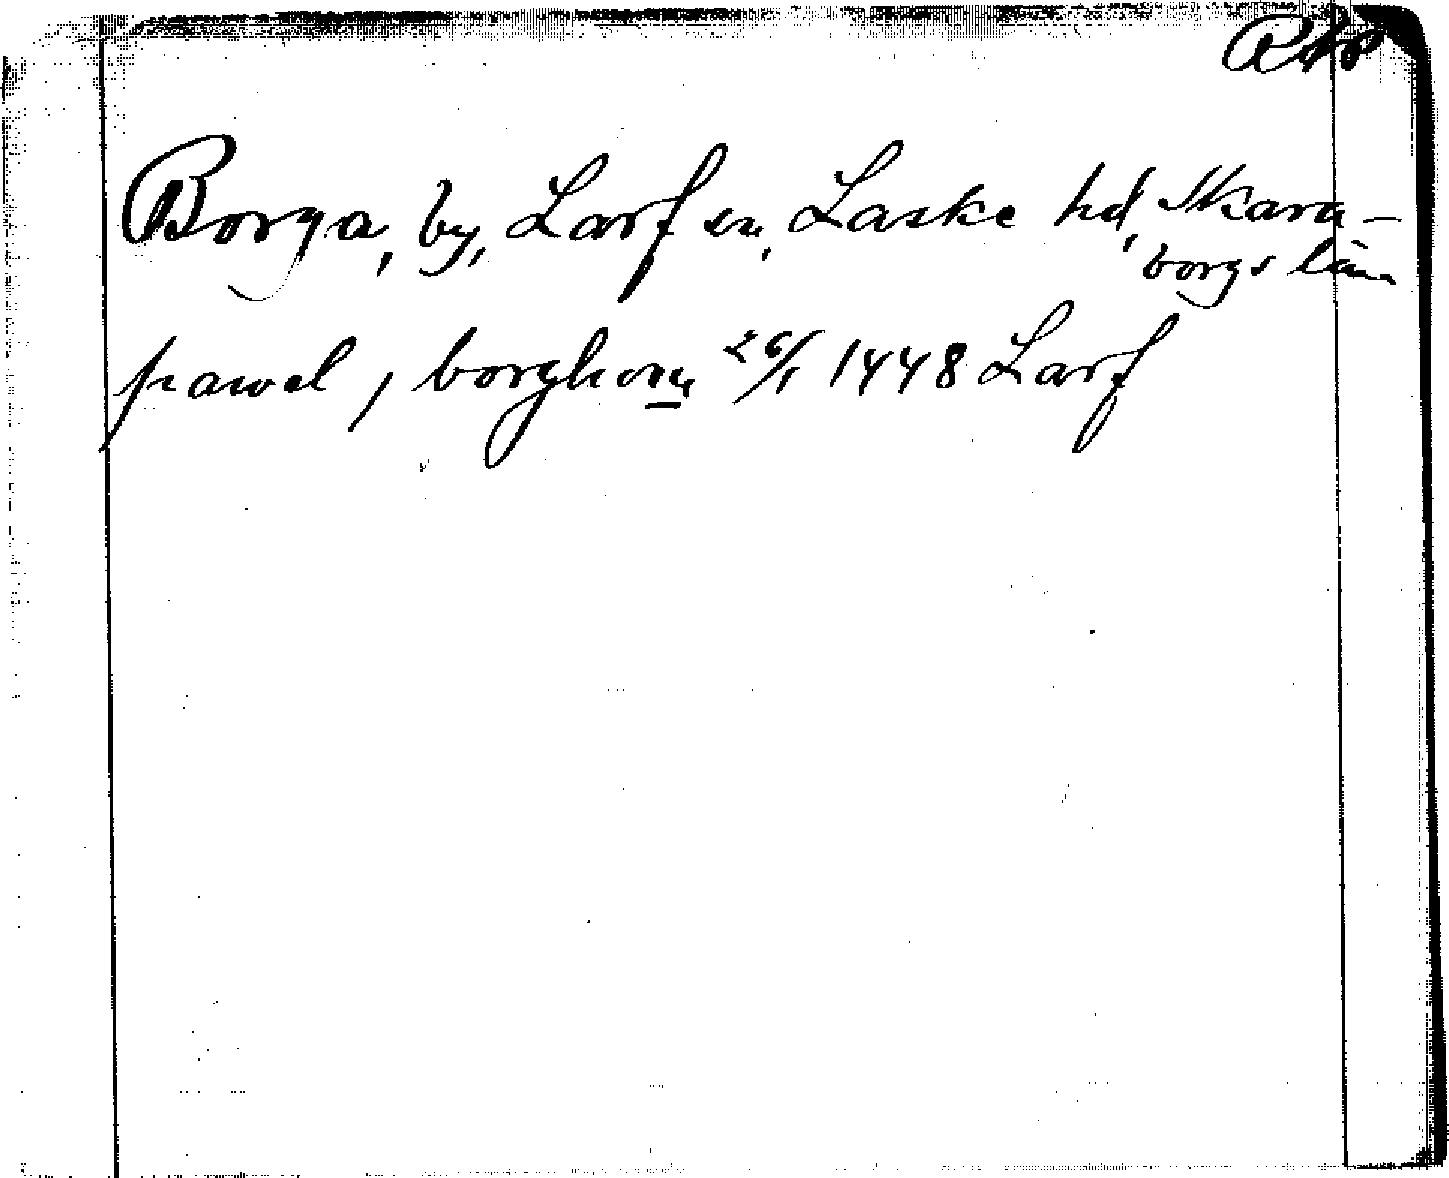 Borga, by, Larf sn, Laske hd, Skara-
borgs län
pawel j borghom 26/1 1448 Larf